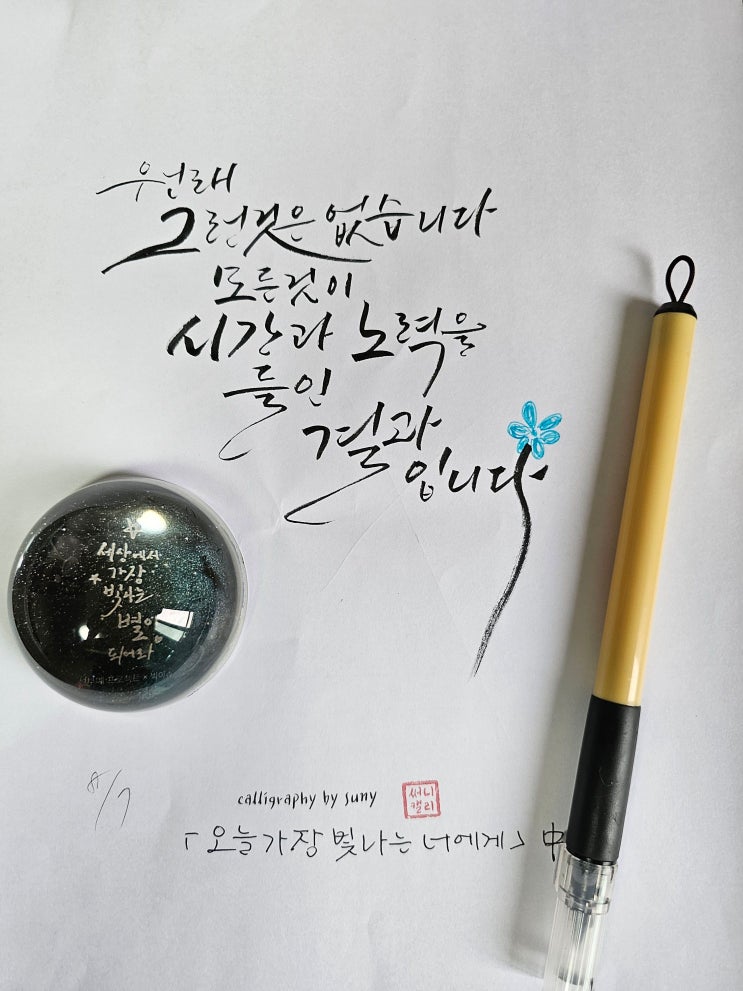 우연래
그런것은 없습니다
모든것이
시간과 노력을
들인
결과
입니다
세상에서
가장
빛나는
별이
되어라
8/7
calligraphy by suny
써니
캘리
「오늘 가장 빛나는 너에게」 中